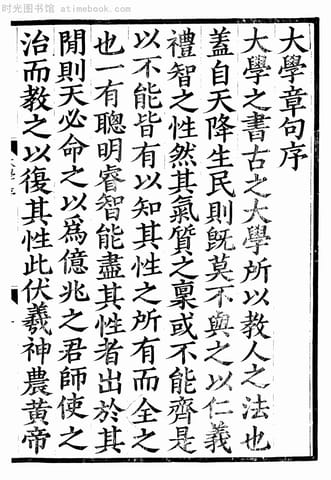 时光图书馆 - atimebook.com
大學章句序
大學之書古之大學所以教人之法也
蓋自天降生民則旣莫不與之以仁義
禮智之性然其氣質之稟或不能齊是
以不能皆有以知其性之所有而全之
也一有聰明睿智能盡其性者出於其
閒則天必命之以爲億兆之君師使之
治而教之以復其性此伏羲神農黃帝